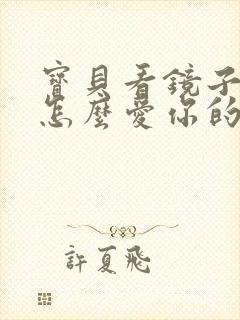 寶貝看鏡子
怎麼愛你的
許夏飛